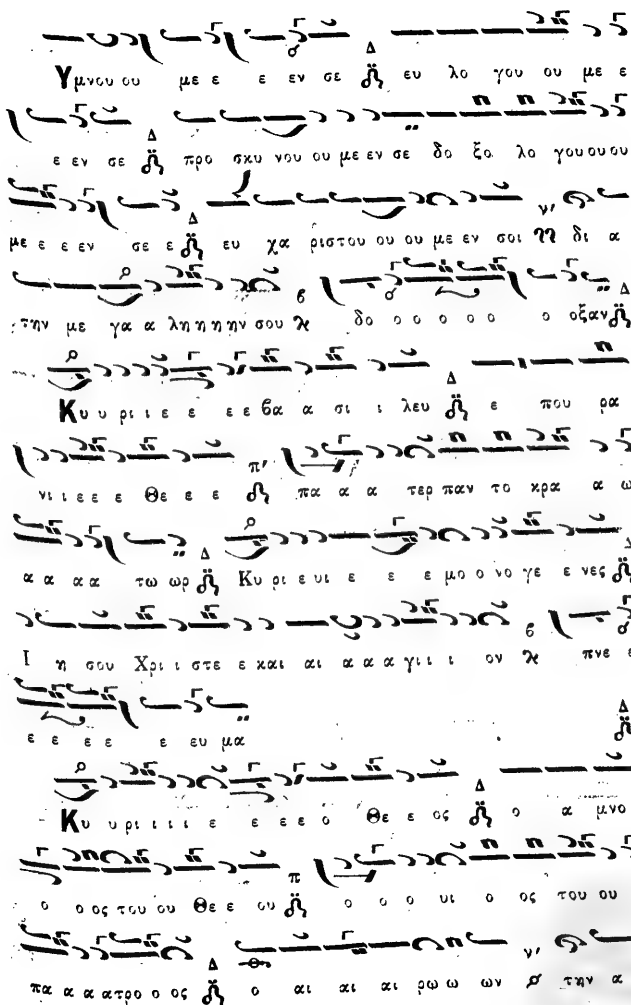 Υμνου ου με ε ε εν σε Δ ευ λο γου ου με ε
ε εν σε Δ προ σκυ νου ου με εν σε δο ξο λο γουουου
με ε ε εν σε ε Δ ευ χα ριστου ου ου με εν σοι ν' δι α
την με γα α λη η η ην σου β δο ο ο ο ο ο ο οξαν Δ
Κυ υ ρι ι ε ε ε ε βα α σι ι λευ Δ ε που ρα
νι ι ε ε ε Θε ε ε π' πα α α τερ παν το κρα α ω
α α α α τω ωρ Δ Κυ ρι ε υι ε ε ε μο ο νο γε ε νες Δ
Ι η σου Χρι ι στε ε και αι α α α γι ι ι ον β πνε ε
ε ε ε ε ε ευ μα Δ
Κυ υ ρι ι ι ι ε ε ε ε ο Θε ε ος Δ ο α μνο
ο ο ος του ου Θε ε ου π ο ο ο υι ο ος του ου
πα α α ατρο ο ος Δ ο αι αι αι ρω ω ων ν' την α